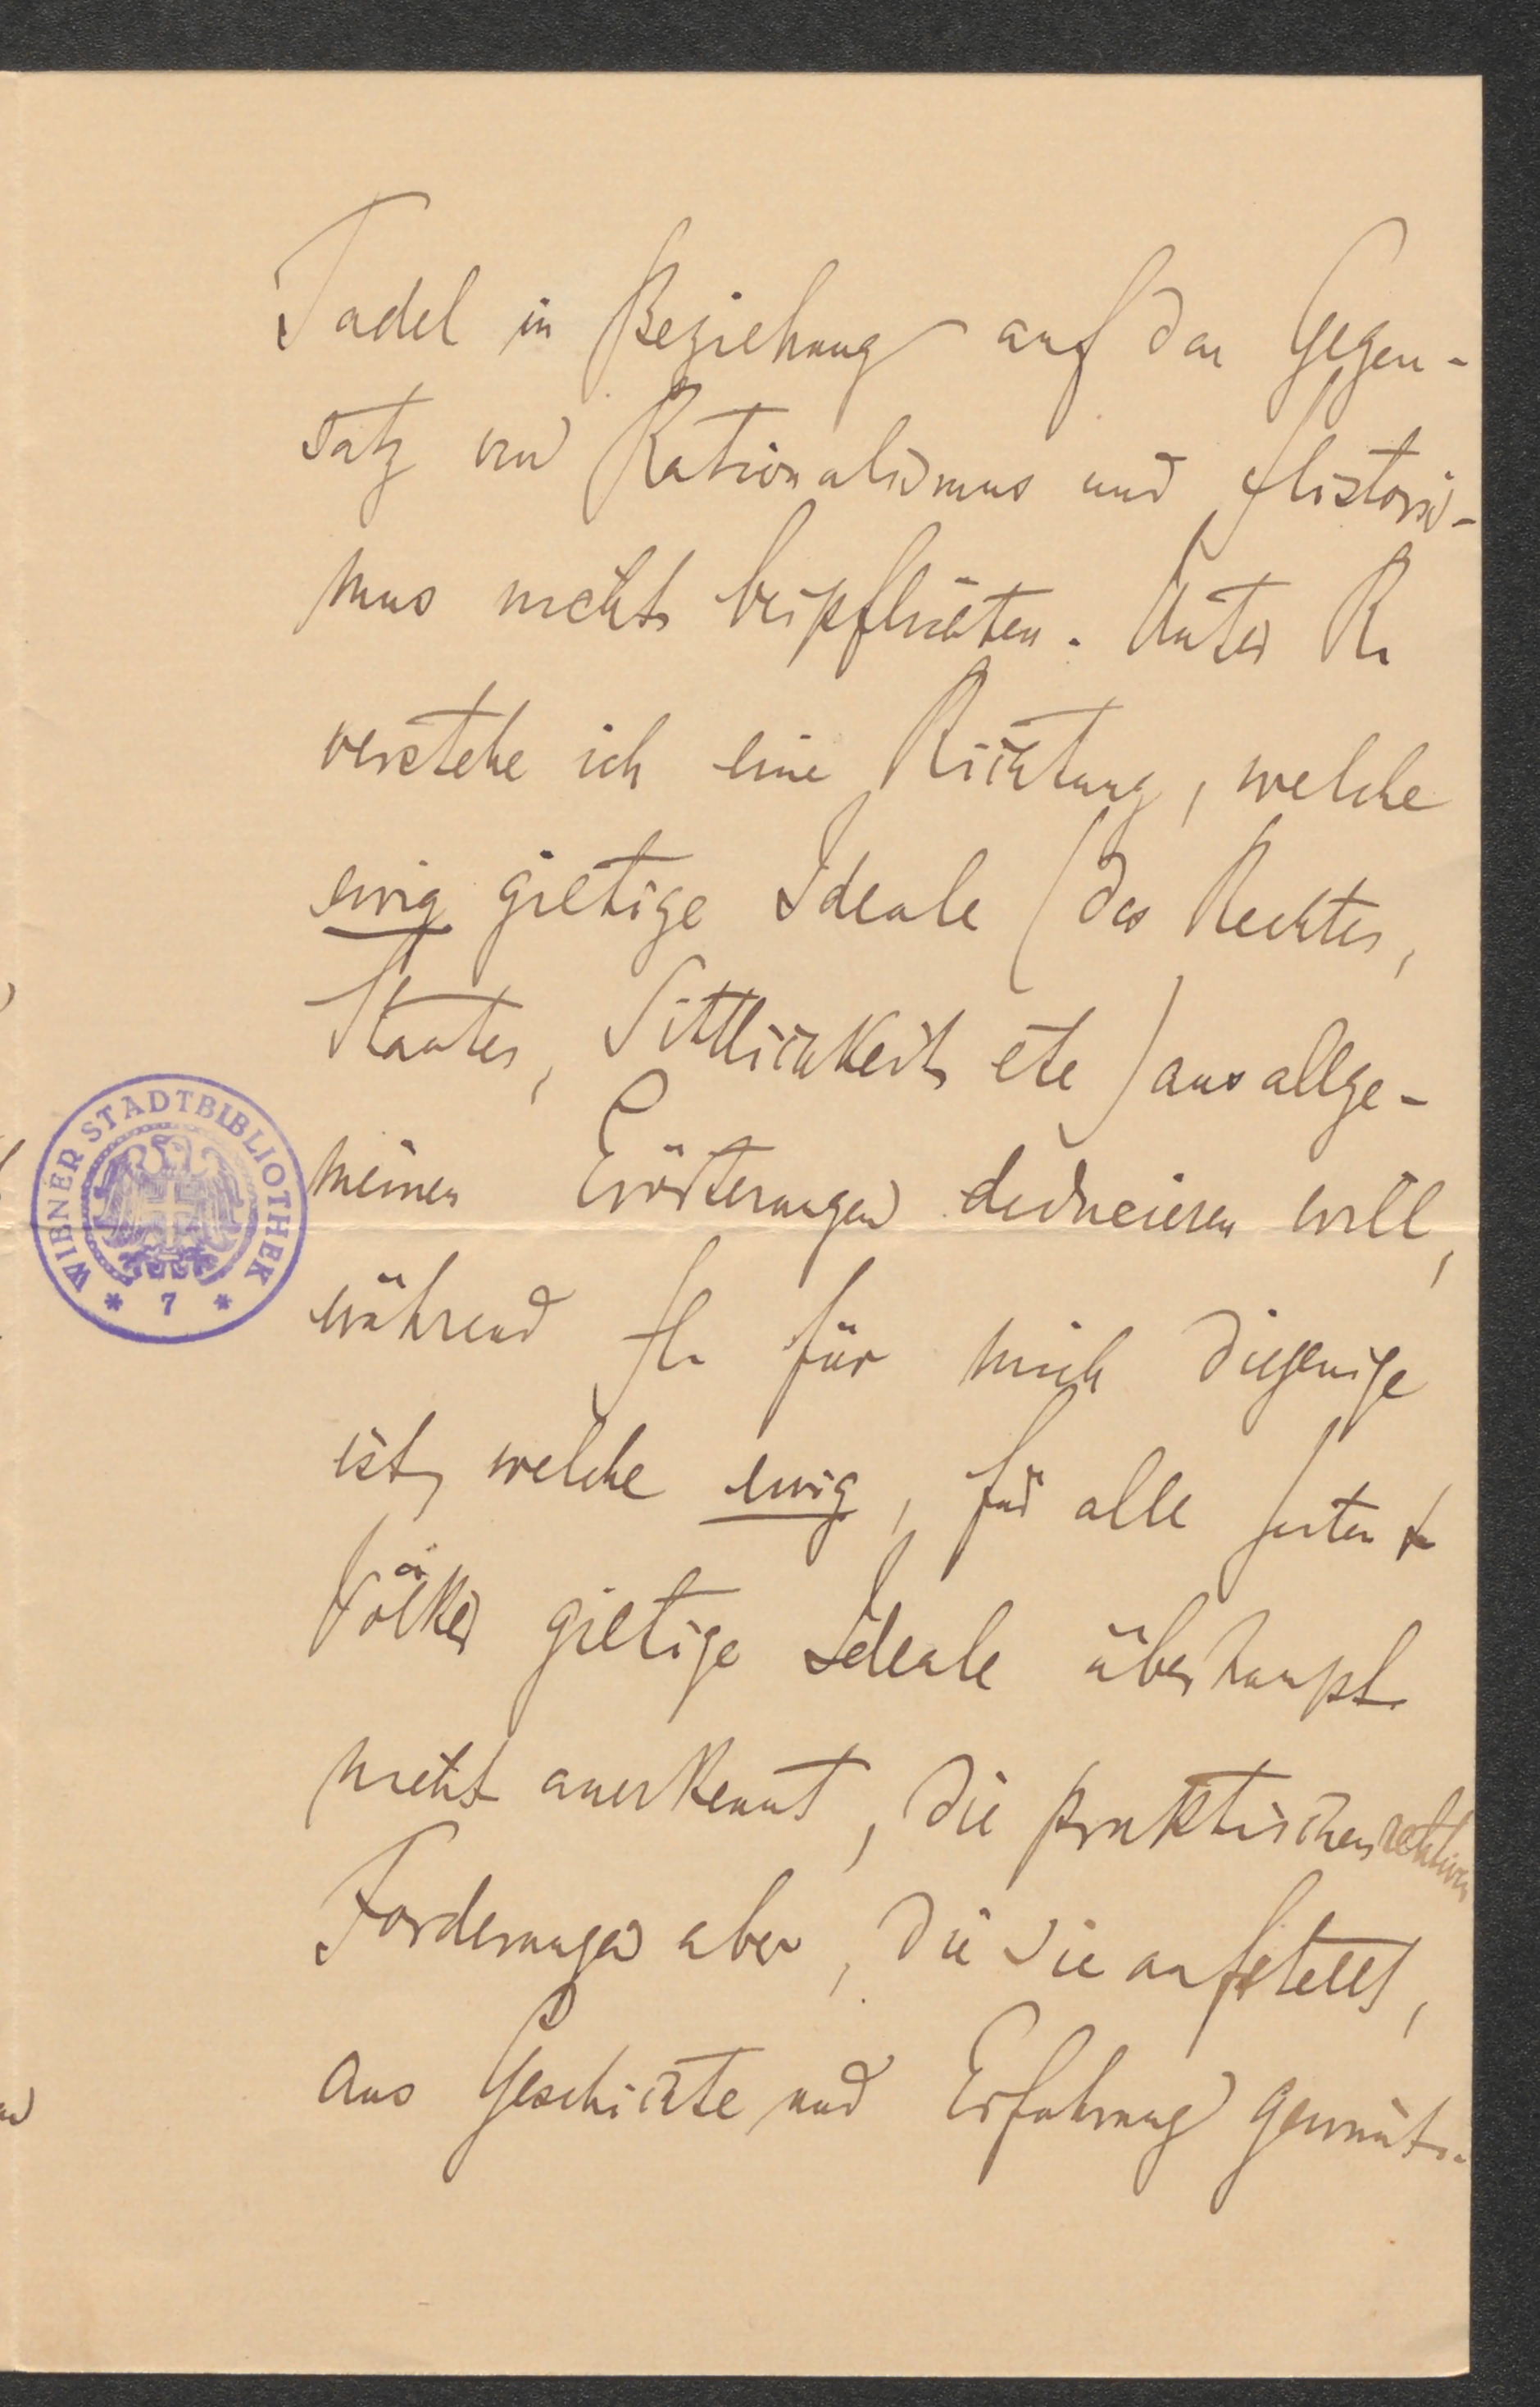 Tadel in Beziehung auf den Gegen-
satz von Rationalismus und Historis-
mus nicht beipflichten. Unter R.
verstehe ich eine Richtung, welche
ewig giltige Ideale (des Rechtes,
Staates, Sittlichkeit etc) aus allge-
meinen Erörterungen deducieren will,
während H. für mich diejenige
ist, welche ewig, für alle Zeiten &
Völker giltige Ideale überhaupt
nicht anerkennt, die praktischen
Forderungen aber, die sie aufstellt,
aus Geschichte und Erfahrung gewinnt.
WIENER STADTBIBLIOTHEK
* 7 *